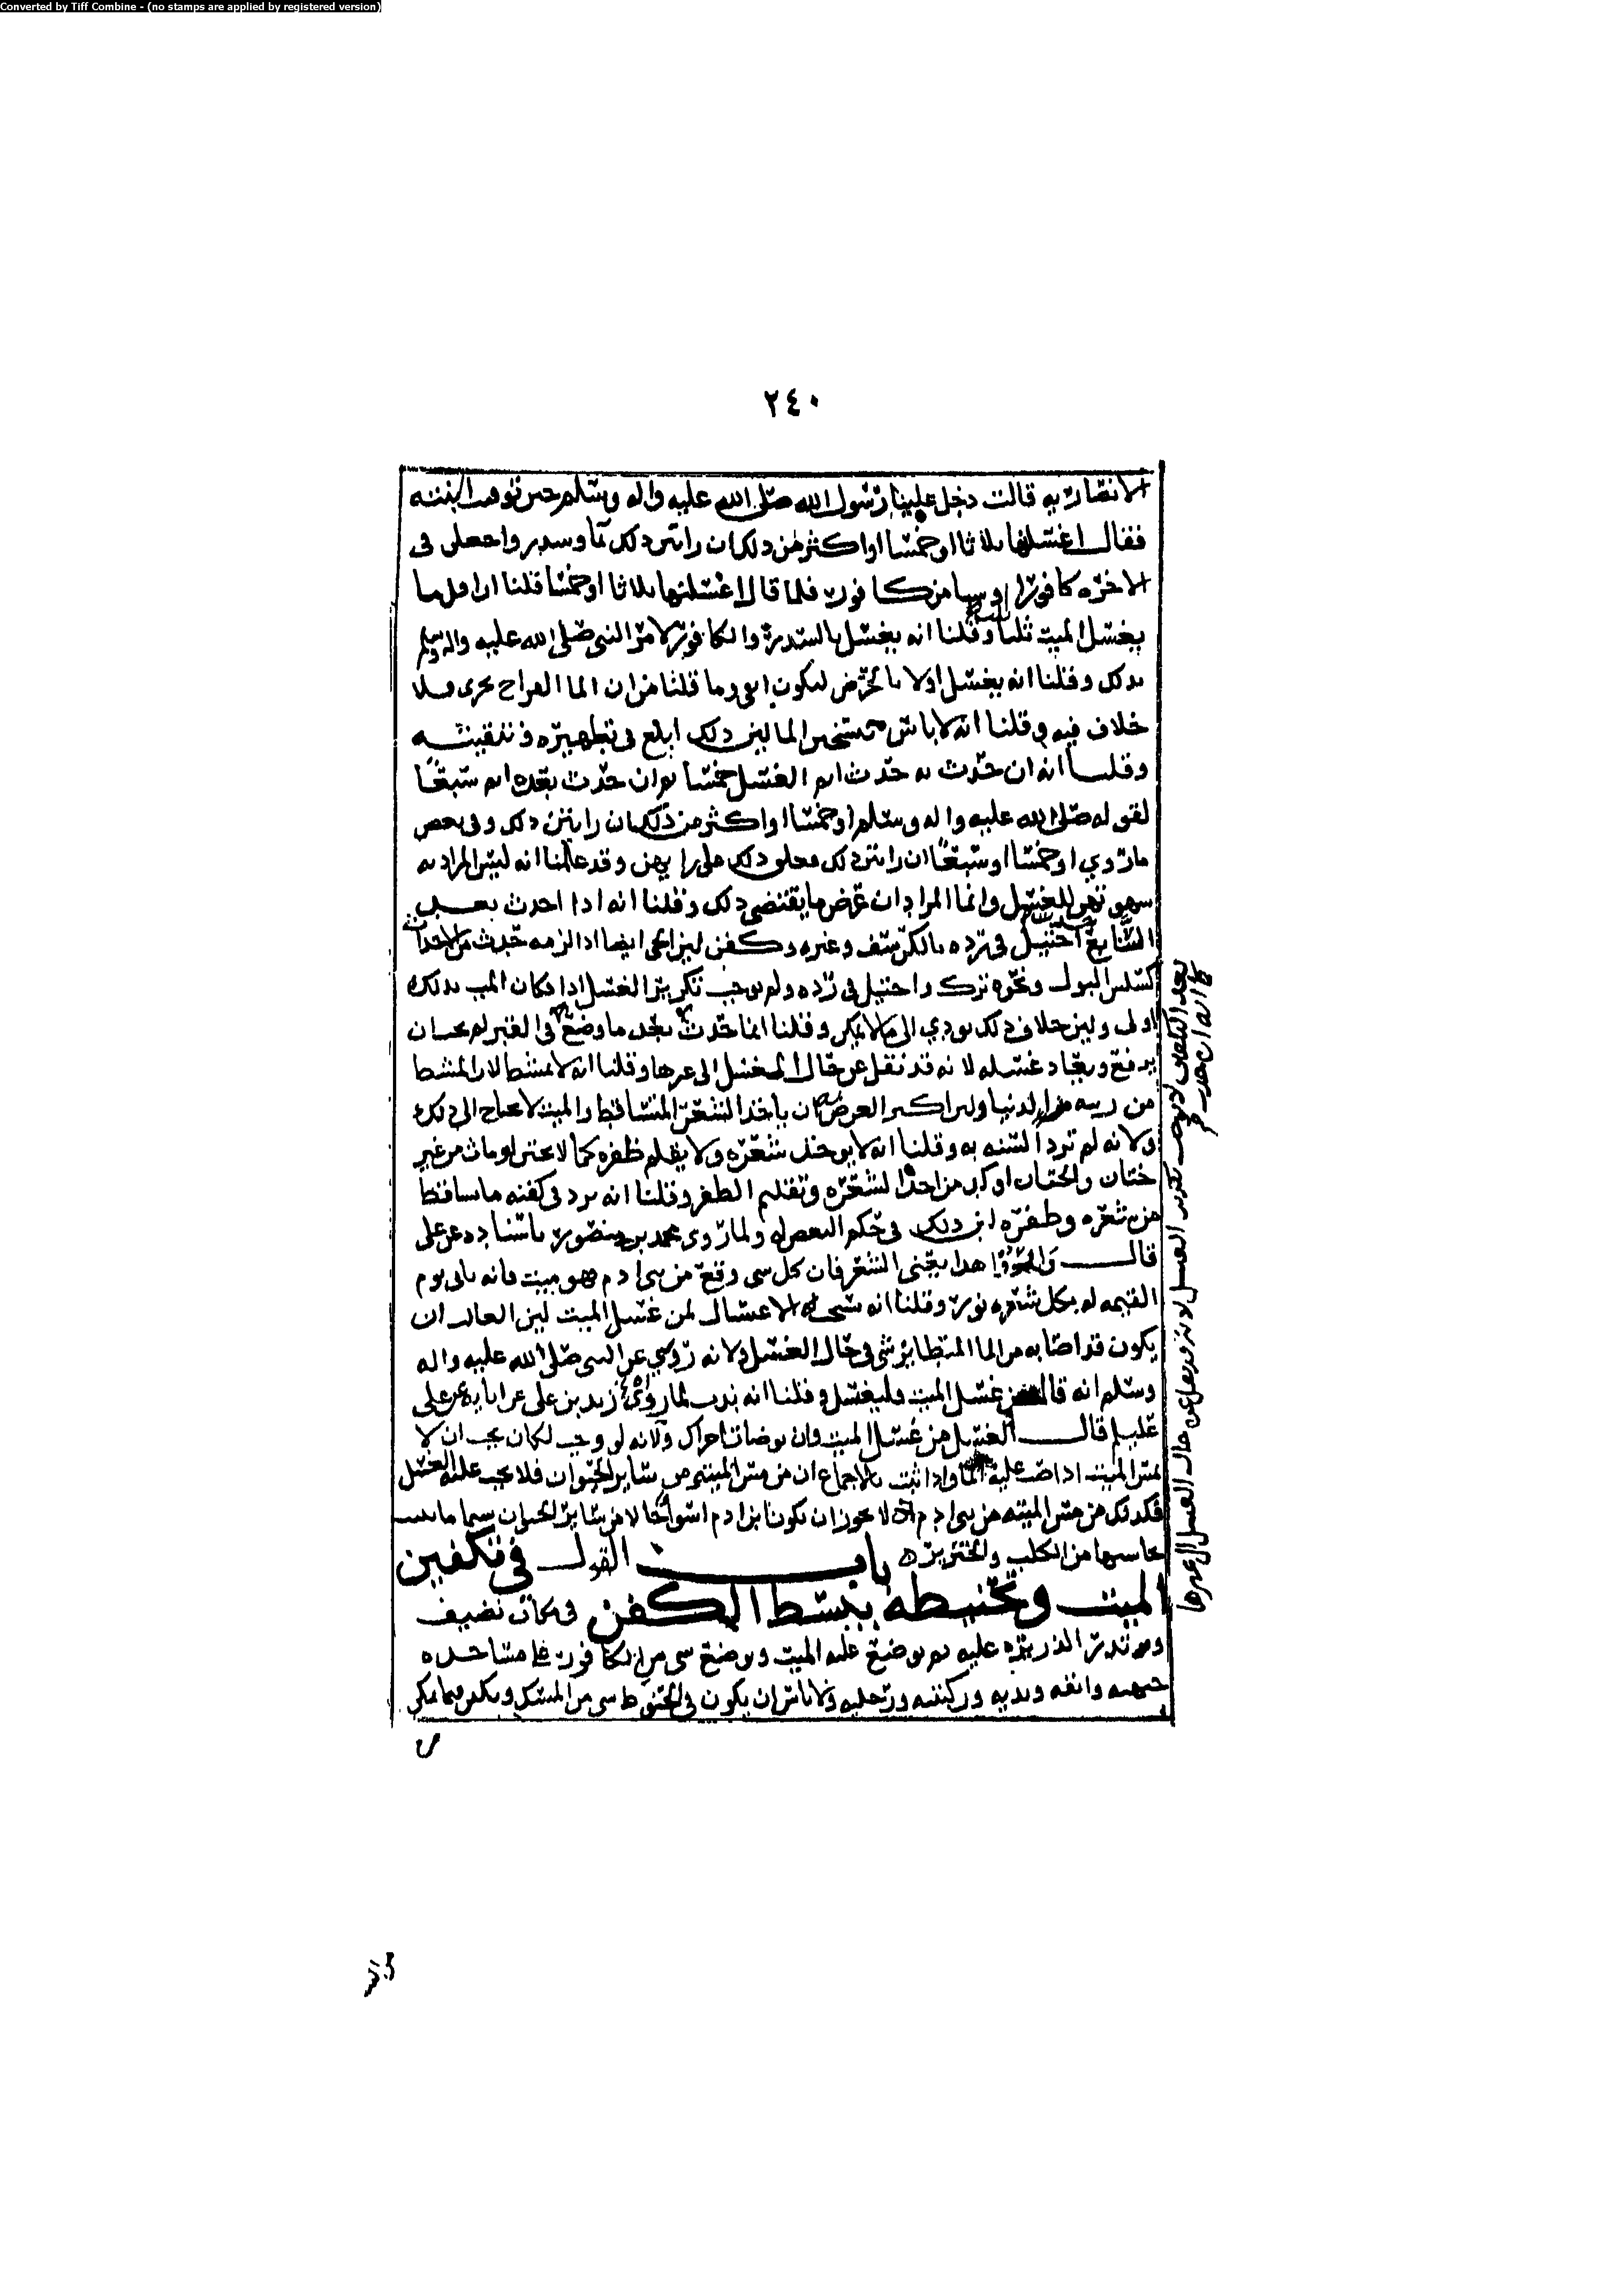 Converted by Tiff Combine - (no stamps are applied by registered version)
٢٤٠
الانصاريه قالت دخل علينا رسول الله صلى الله عليه واله وسلم حين توفيت ابنته
فقال اغسلنها ثلاثا او خمسا او اكثر من ذلك ان رايتن ذلك بما وسدر واجعلن في
الاخره كافورا او شيا من كافور فلما قال اغسلنها ثلاثا او خمسا قلنا ان اقل ما
يغسل الميت ثلثا وقلنا انه يغسل بالسدرة والكافور لامر النبي صلى الله عليه واله وسلم
بذلك وقلنا انه يغسل اولا بالحرض ليكون انقى وما قلنا من ان الما القراح يجزي فلا
خلاف فيه وقلنا انه لا باس بتسخين الما لين ذلك ابلغ في تطهيره وتنقيته
وقلنا انه ان حدث به حدث اتم الغسل خمسا ثم ان حدث بعده اتم سبعا
لقوله صلى الله عليه واله وسلم او خمسا او اكثر من ذلك ان رايتن ذلك وفي بعض
ما روي او خمسا او سبعا ان رايتن ذلك فعلق ذلك على رايهن وقد علمنا انه ليس المراد به
للغسل وانما المراد ان عرض ما يقتضي ذلك وقلنا انه اذا احدث بعد
السابع احتيل في رده بالكرسف وغيره وكفن لين الحي ايضا اذا لزمه حدث من الاحداث
كسلس البول ونحوه ترك واحتيل في رده ولم يوجب تكرير الغسل اذا فكان الميت بذلك
اولى ولين خلاف ذلك يودي الى ما لا يمكن وقلنا انما حدث بعد ما وضع في القبر لم يجب ان
يرفع ويعاد غسله لانه قد نقل عن حال الغسل الى غيرها وقلنا انه لا يمشط لان المشط
من زينه الدنيا ولين اكبر الغرض ان ياخذ الشعر المتساقط والميت لا يحتاج الى ذلك
ولانه لم ترد السنه به وقلنا انه لا يوخذ شعره ولا يقلم ظفره كما لا يختن لو مات من غير
ختان والختان اوكد من اخذ الشعره وتقليم الظفر وقلنا انه يرد في كفنه ما تساقط
من شعره وظفره لين ذلك في حكم البعض له ولما روى محمد بن منصور باسناده عن علي
قال هذا يعني الشعر فان كل شي وقع من بني ادم فهو ميت فانه ياتي يوم
القيمه له بكل شعره نور وقلنا انه يستحب له الاغتسال لمن غسل الميت لين الغالب ان
يكون قد اصابه من الما المتطاير شي في حال الغسل ولانه روي عن النبي صلى الله عليه واله
وسلم انه قال من غسل الميت فليغتسل وقلنا انه ندب لما روى زيد بن علي عن ابايه عن علي
عليلم قال الغسل من غسل الميت وان توضات اجزاك ولانه لو وجب لكان يجب ان لا
يمس الميت اذا صب عليه الما واذا ثبت بالاجماع ان من مس الميته من ساير الحيوان فلا يجب عليه الغسل
فكذلك من مس الميته من بني ادم لانه لا يجوز ان يكون ابن ادم اسوا حالا من ساير الحيوان سيما ما يثبت
نجاستها من الكلب والخنزيره باب القول في تكفين
الميت وتحنيطه يبسط الكفن في مكان نضيف
ثم تذر الذريره عليه ثم يوضع عليه الميت ويوضع شي من الكافور على مساجده
جبهته وانفه ويديه وركبتيه ورجليه ولا باس ان يكون في الحنوط شي من المسك ويكفن فيما يمكن